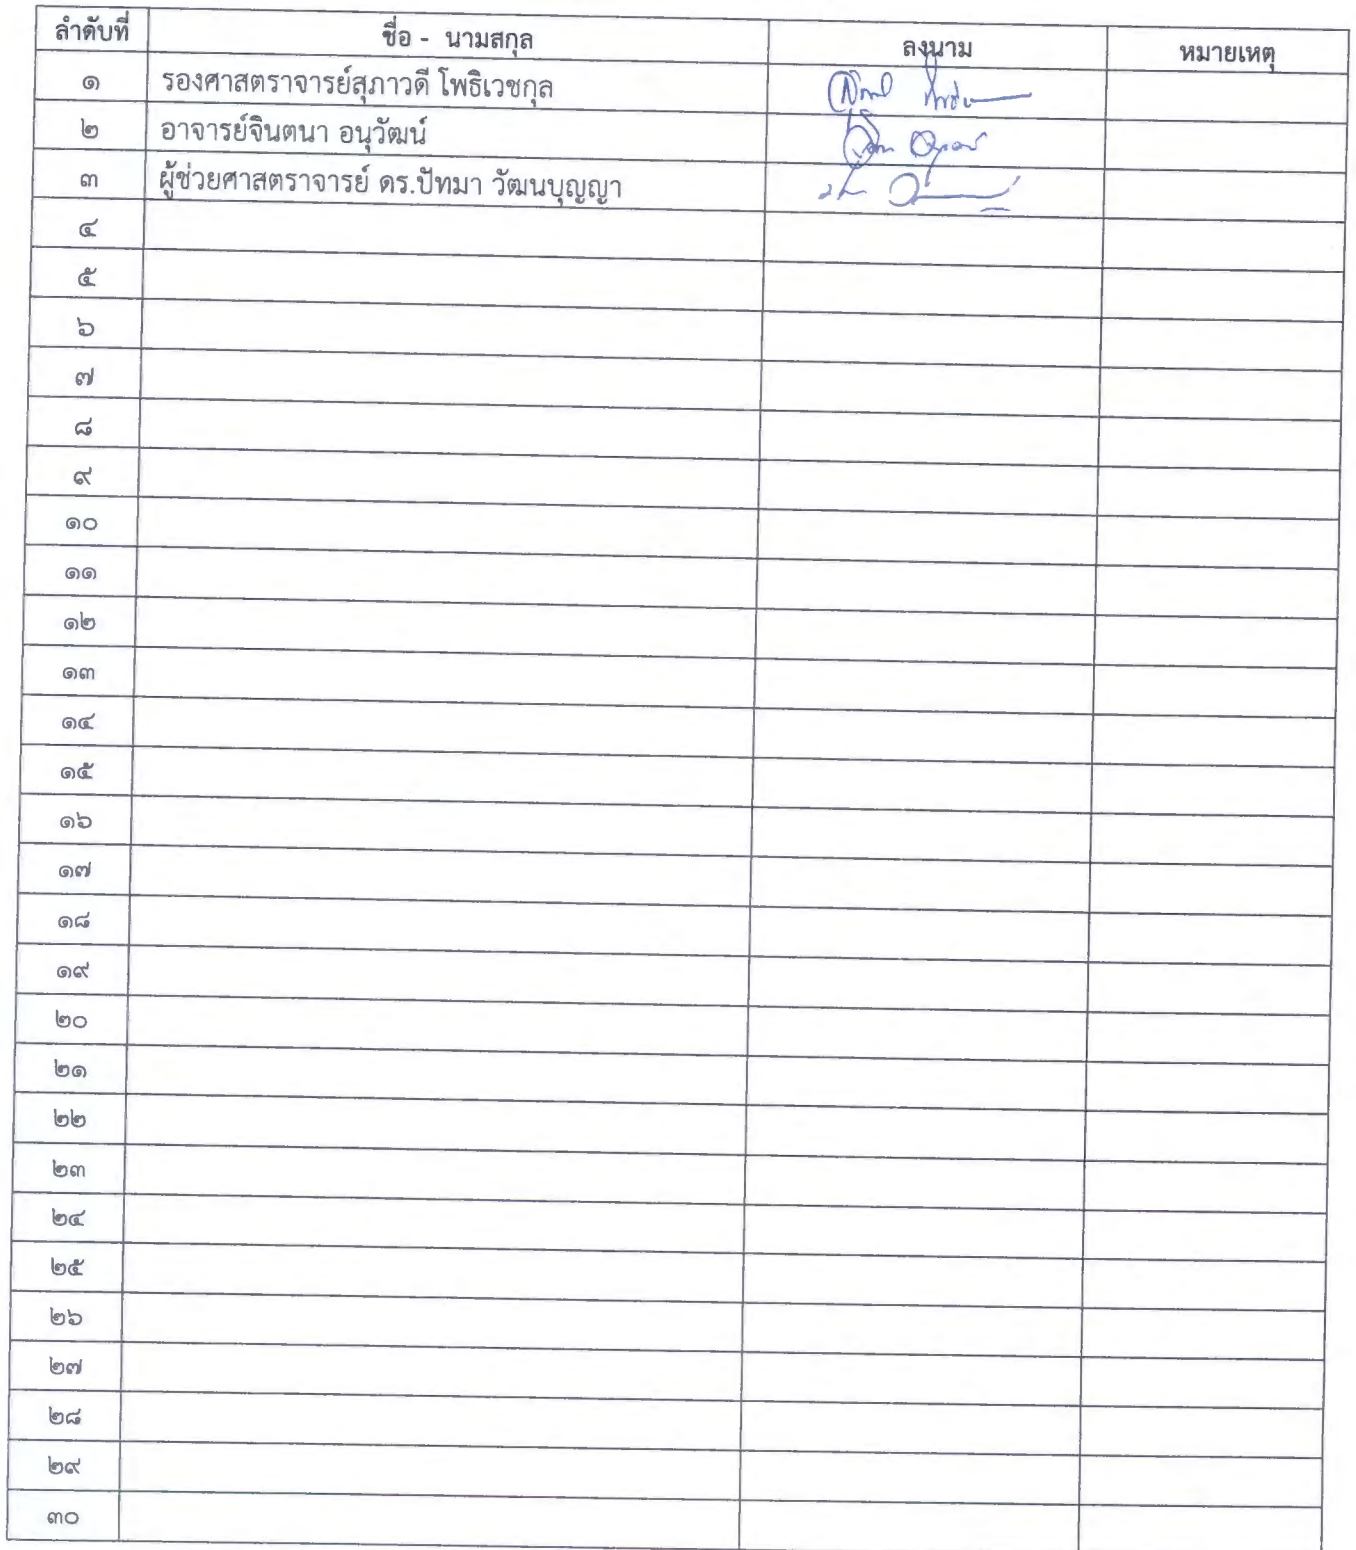 ลำดับที่ ชื่อ - นามสกุล ลงนาม หมายเหตุ
๑ รองศาสตราจารย์สุภาวดี โพธิเวชกุล
๒ อาจารย์จินตนา อนุวัฒน์
๓ ผู้ช่วยศาสตราจารย์ ดร.ปัทมา วัฒนบุญญา
๔
๕
๖
๗
๘
๙
๑๐
๑๑
๑๒
๑๓
๑๔
๑๕
๑๖
๑๗
๑๘
๑๙
๒๐
๒๑
๒๒
๒๓
๒๔
๒๕
๒๖
๒๗
๒๘
๒๙
๓๐